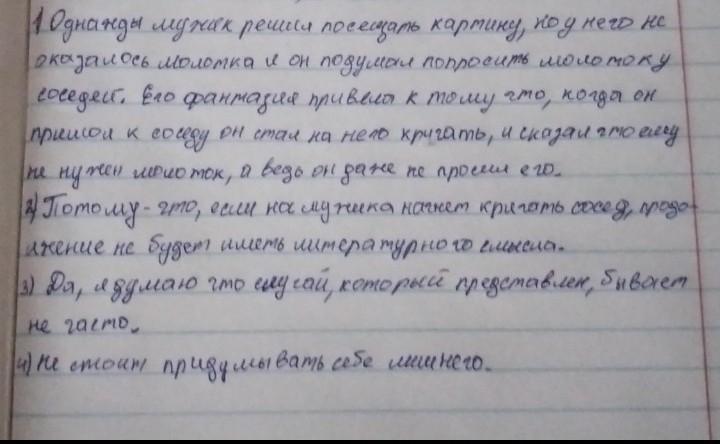 1 Однажды мужик решил посещать картину, но у него не
оказалось молотка и он подумал попросить молоток у
соседей. Его фантазия привела к тому что, когда он
пришол к соседу он стал на него кричать, и сказал что ему
не нужен молоток, а ведь он даже не просил его.
2) Потому-что, если на мужика начнет кричать сосед, продо-
лжение не будет иметь литературного смысла.
3) Да, я думаю что случай, который представлен, бывает
не часто.
4) Не стоит придумывать себе лишнего.